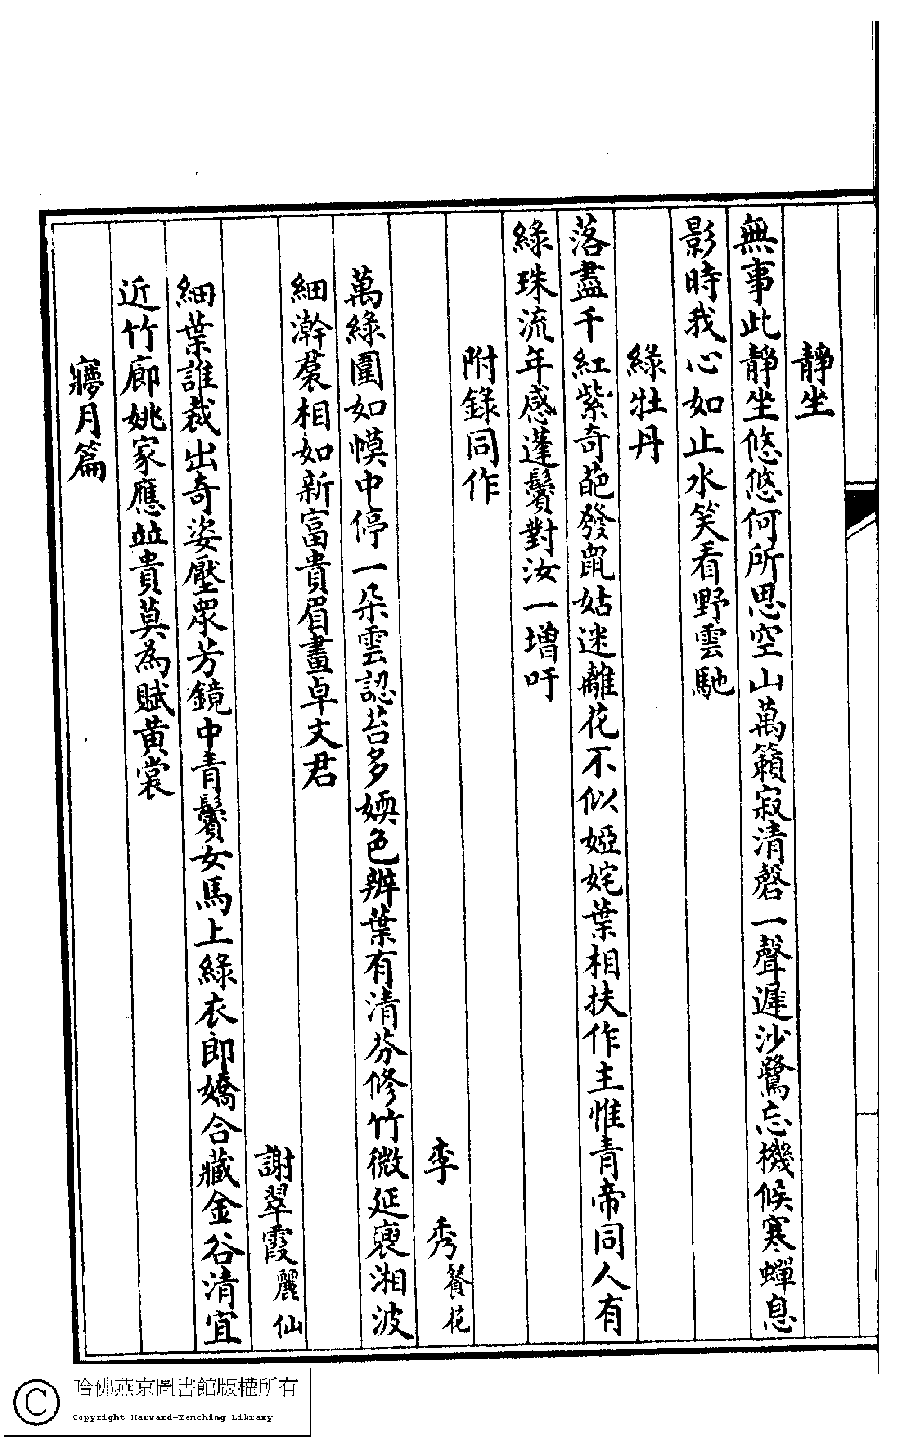 靜坐
無事此靜坐悠悠何所思空山萬籟寂清磬一聲遲沙鷺忘機候寒蟬息
影時我心如止水笑看野雲馳
綠牡丹
落盡千紅紫奇葩發鼠姑迷離花不似婭姹葉相扶作主惟青帝同人有
綠珠流年感蓬鬢對汝一增吁
附錄同作
李秀餐花
萬綠圍如幙中停一朵雲認苔多媆色辨葉有清芬修竹微延裒湘波
細瀚裠相如新富貴眉畫卓文君
謝翠霞麗仙
細葉誰裁出奇姿壓眾芳鏡中青鬢女馬上綠衣郎嬌合藏金谷清宜
近竹廊姚家應並貴莫為賦黃裳
寱月篇
哈佛燕京圖書館版權所有
Copyright Harvard-Yenching Library